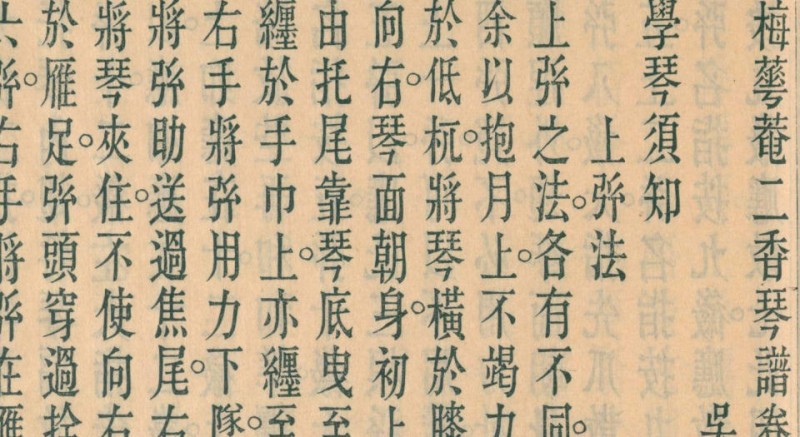 梅蕐菴二香琴譜卷
吳
學琴須知
上弥法
上弥之法。各有不同。
余以抱月上。不竭力
於低杬。將琴橫於膝
向右。琴面朝身。初上
由托尾靠琴底曳至
纏於手巾上。亦纏至
右手將弥用力下隊。
將弥助送過焦尾。右
將琴夾住。不使向右
於雁足。弥頭穿過拴
弥。右手將弥在雁